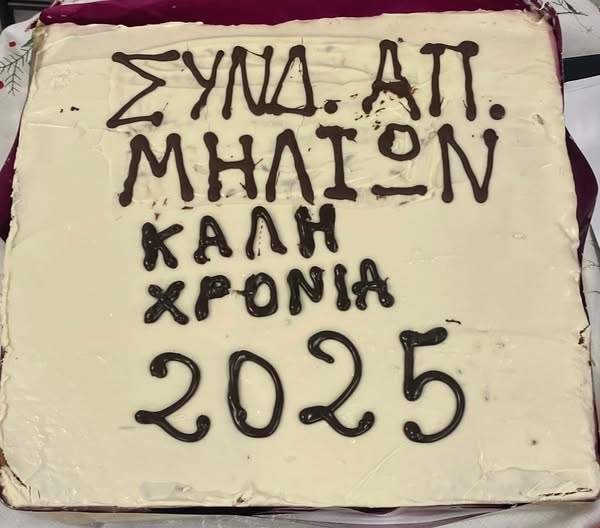 ΣΥΝΔ. ΑΠ.
ΜΗΛΙΩΝ
ΚΑΛΗ
ΧΡΟΝΙΑ
2025